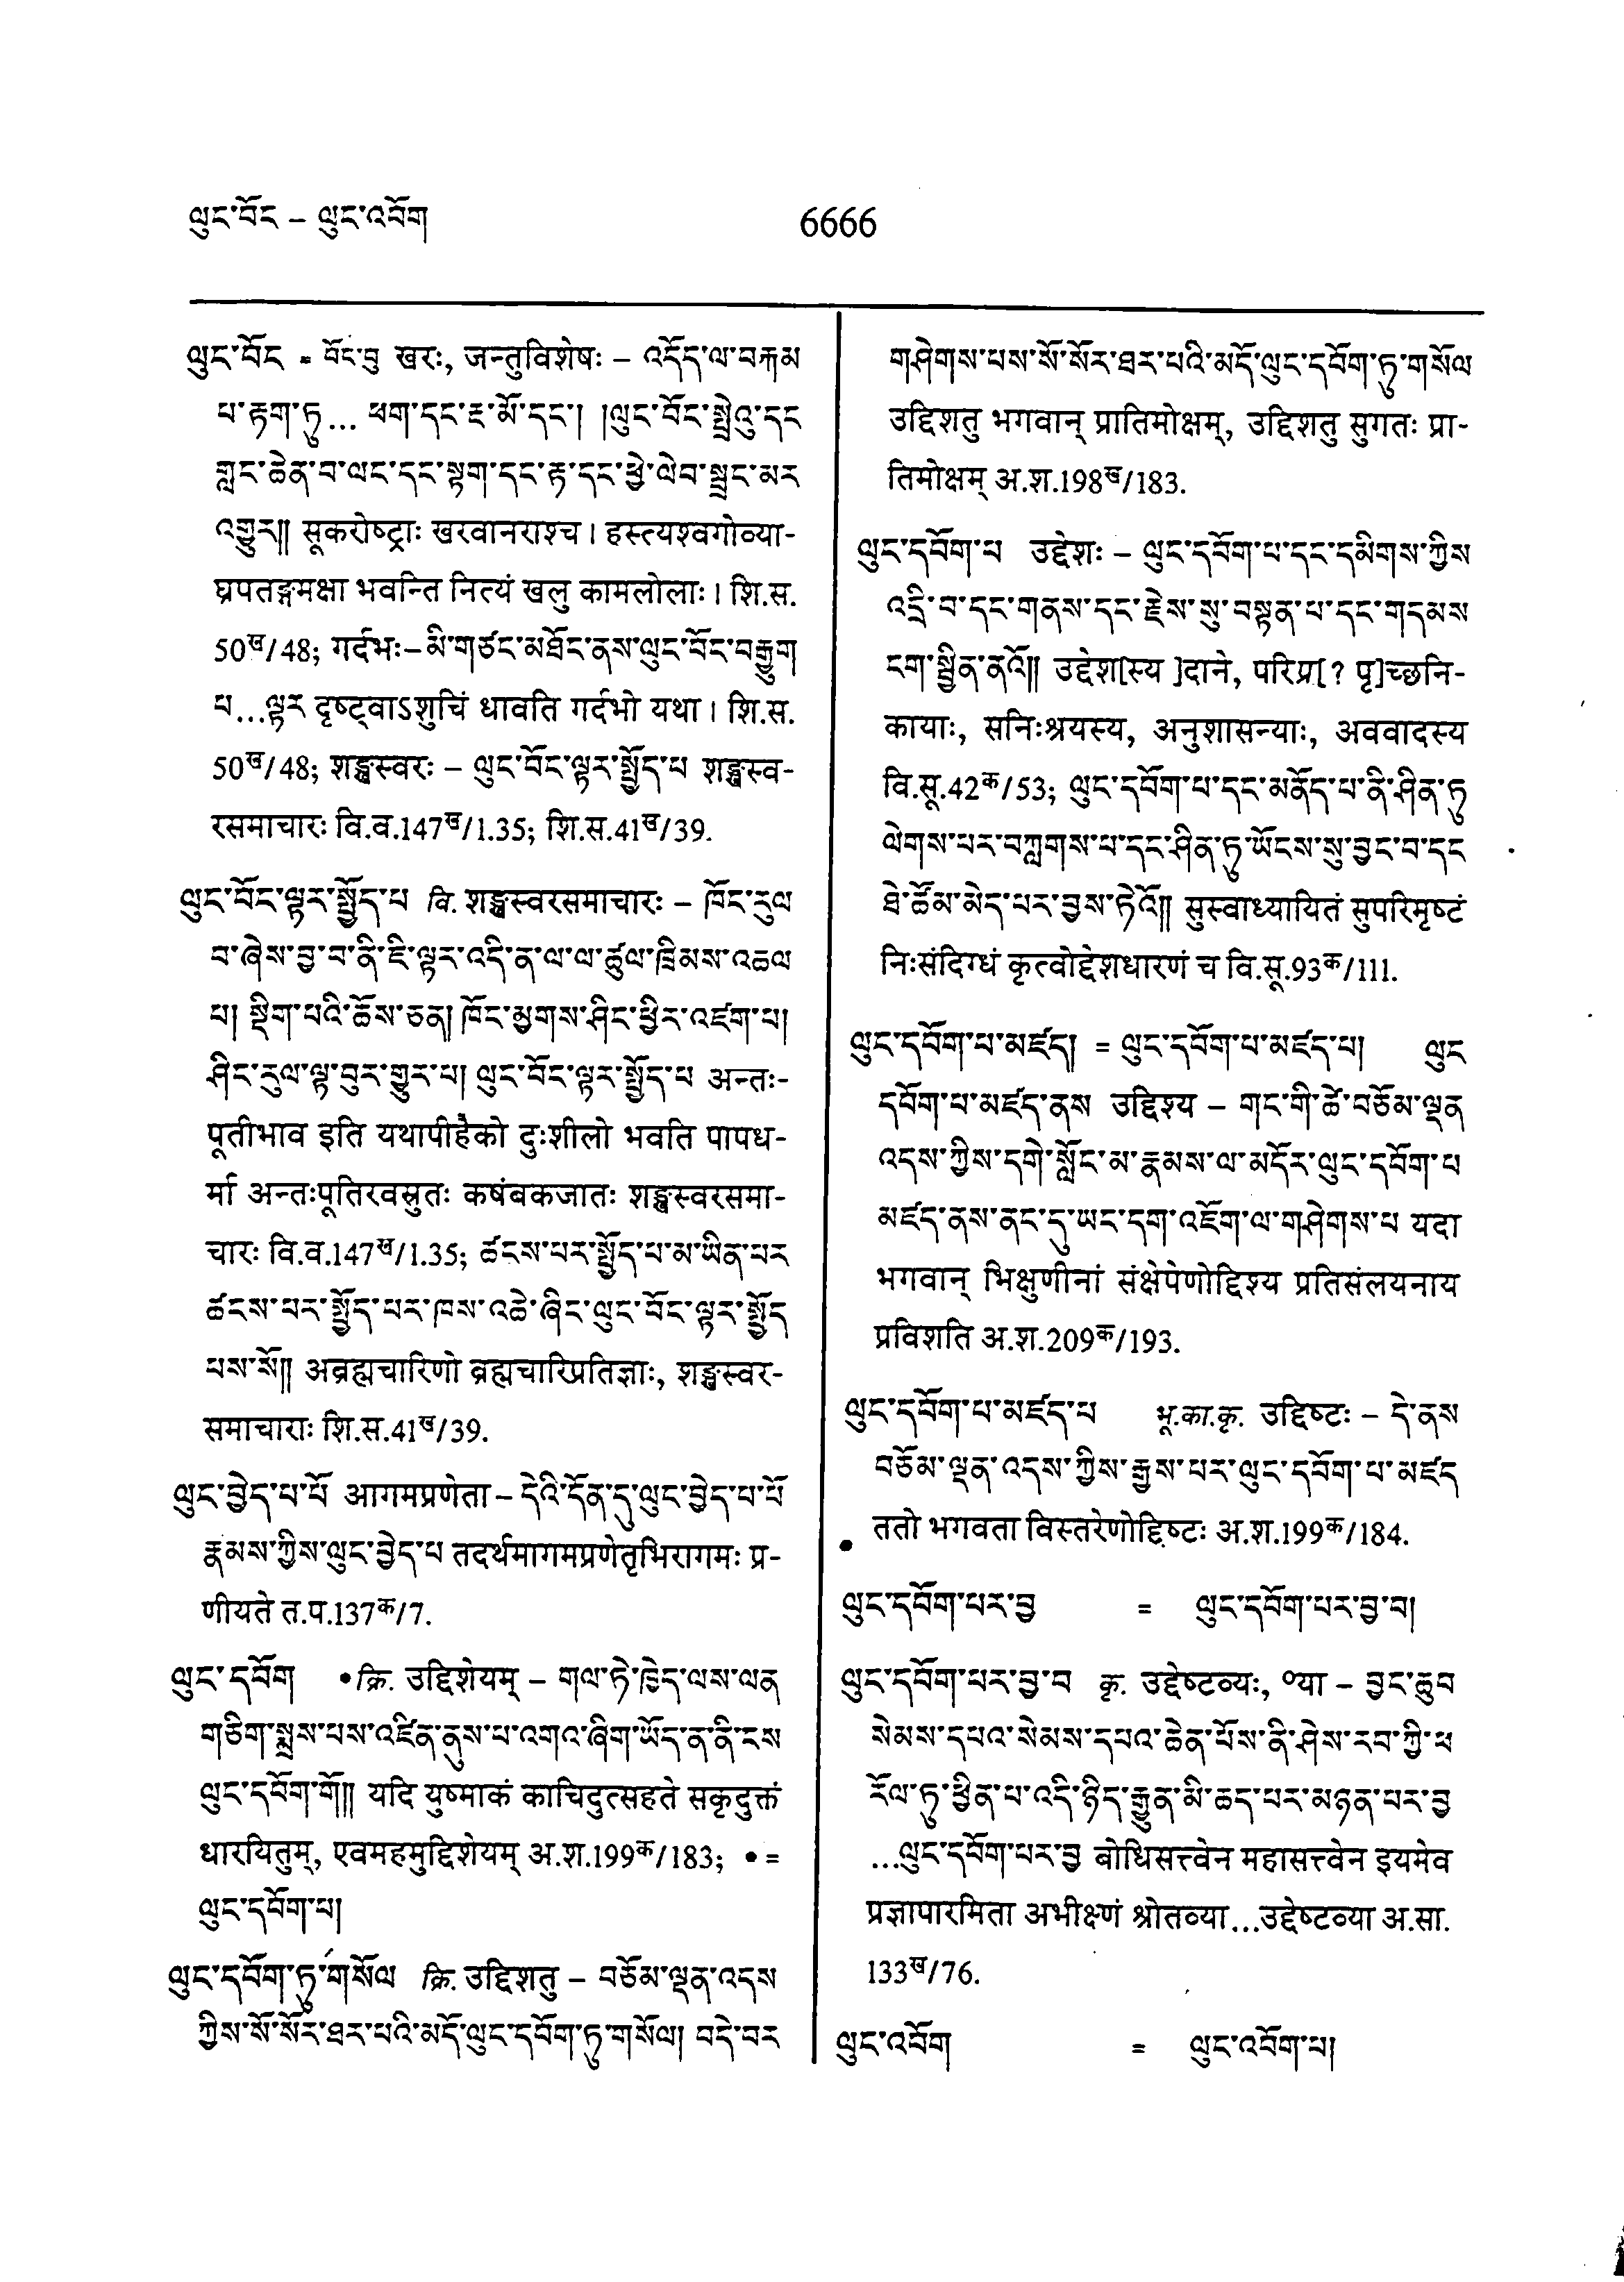 ལུང་བོང – ལུང་འབོག
6666
ལུང་བོང = བོང་བུ खरः, जन्तुविशेषः – འདོད་ལ་བརྐམ
པ་རྟག་ཏུ... ཕག་དང་རྔ་མོ་དང་། །ལུང་བོང་སྤྲེའུ་དང
གླང་ཆེན་བ་ལང་དང་སྟག་དང་རྟ་དང་ཕྱེ་ལེབ་སྦྲང་མར
འགྱུར།། सूकरोष्ट्राः खरवानराश्च । हस्त्यश्वगोव्या-
घ्रपतङ्गमक्षा भवन्ति नित्यं खलु कामलोलाः । शि.स.
50ख/48; गर्दभः – མི་གཙང་མཐོང་ནས་ལུང་བོང་བརྒྱུག
པ...ལྟར दृष्ट्वाऽशुचिं धावति गर्दभो यथा । शि.स.
50ख/48; शङ्खस्वरः – ལུང་བོང་ལྟར་སྤྱོད་པ शङ्खस्व-
रसमाचारः वि.व.147ख/1.35; शि.स.41ख/39.
ལུང་བོང་ལྟར་སྤྱོད་པ वि. शङ्खस्वरसमाचारः – ཁོང་རུལ
བ་ཞེས་བྱ་བ་ནི་ཇི་ལྟར་འདི་ན་ལ་ལ་ཚུལ་ཁྲིམས་འཆལ
པ། སྡིག་པའི་ཆོས་ཅན། ཁོང་མྱགས་ཤིང་ཕྱིར་འཛག་པ།
ཤིང་རུལ་ལྟ་བུར་གྱུར་པ། ལུང་བོང་ལྟར་སྤྱོད་པ अन्तः-
पूतीभाव इति यथापीहैको दुःशीलो भवति पापध-
र्मा अन्तःपूतिरवस्रुतः कषंबकजातः शङ्खस्वरसमा-
चारः वि.व.147ख/1.35; ཚངས་པར་སྤྱོད་པ་མ་ཡིན་པར
ཚངས་པར་སྤྱོད་པར་ཁས་འཆེ་ཞིང་ལུང་བོང་ལྟར་སྤྱོད
པས་སོ།། अब्रह्मचारिणो ब्रह्मचारिप्रतिज्ञाः, शङ्खस्वर-
समाचाराः शि.स.41ख/39.
ལུང་བྱེད་པ་པོ आगमप्रणेता – དེའི་དོན་དུ་ལུང་བྱེད་པ་པོ
རྣམས་ཀྱིས་ལུང་བྱེད་པ तदर्थमागमप्रणेतृभिरागमः प्र-
णीयते त.प.137क/7.
ལུང་དབོག • क्रि. उद्दिशेयम् – གལ་ཏེ་ཁྱེད་ལས་ལན
གཅིག་སྨྲས་པས་འཛིན་ནུས་པ་འགའ་ཞིག་ཡོད་ན་ནི་ངས
ལུང་དབོག་གོ།། यदि युष्माकं काचिदुत्सहते सकृदुक्तं
धारयितुम्, एवमहमुद्दिशेयम् अ.श.199क/183; • =
ལུང་དབོག་པ།
ལུང་དབོག་ཏུ་གསོལ क्रि. उद्दिशतु – བཅོམ་ལྡན་འདས
ཀྱིས་སོ་སོར་ཐར་པའི་མདོ་ལུང་དབོག་ཏུ་གསོལ། བདེ་བར
གཤེགས་པས་སོ་སོར་ཐར་པའི་མདོ་ལུང་དབོག་ཏུ་གསོལ
उद्दिशतु भगवान् प्रातिमोक्षम्, उद्दिशतु सुगतः प्रा-
तिमोक्षम् अ.श.198ख/183.
ལུང་དབོག་པ उद्देशः – ལུང་དབོག་པ་དང་དམིགས་ཀྱིས
འདྲི་བ་དང་གནས་དང་རྗེས་སུ་བསྟན་པ་དང་གདམས
ངག་སྦྱིན་ནའོ།། उद्देश[स्य ]दाने, परिप्र[? पृ]च्छनि-
कायाः, सनिःश्रयस्य, अनुशासन्याः, अववादस्य
वि.सू.42क/53; ལུང་དབོག་པ་དང་མནོད་པ་ནི་ཤིན་ཏུ
ལེགས་པར་བཀླགས་པ་དང་ཤིན་ཏུ་ཡོངས་སུ་བྱང་བ་དང
ཐེ་ཚོམ་མེད་པར་བྱས་ཏེའོ།། सुस्वाध्यायितं सुपरिमृष्टं
निःसंदिग्धं कृत्वोद्देशधारणं च वि.सू.93क/111.
ལུང་དབོག་པ་མཛད། = ལུང་དབོག་པ་མཛད་པ། ལུང
དབོག་པ་མཛད་ནས उद्दिश्य – གང་གི་ཚེ་བཅོམ་ལྡན
འདས་ཀྱིས་དགེ་སློང་མ་རྣམས་ལ་མདོར་ལུང་དབོག་པ
མཛད་ནས་ནང་དུ་ཡང་དག་འཇོག་ལ་གཤེགས་པ यदा
भगवान् भिक्षुणीनां संक्षेपेणोद्दिश्य प्रतिसंलयनाय
प्रविशति अ.श.209क/193.
ལུང་དབོག་པ་མཛད་པ भू.का.कृ. उद्दिष्टः – དེ་ནས
བཅོམ་ལྡན་འདས་ཀྱིས་རྒྱས་པར་ལུང་དབོག་པ་མཛད
ततो भगवता विस्तरेणोद्दिष्टः अ.श.199क/184.
ལུང་དབོག་པར་བྱ = ལུང་དབོག་པར་བྱ་བ།
ལུང་དབོག་པར་བྱ་བ कृ. उद्देष्टव्यः, ०या – བྱང་ཆུབ
སེམས་དཔའ་སེམས་དཔའ་ཆེན་པོས་ནི་ཤེས་རབ་ཀྱི་ཕ
རོལ་ཏུ་ཕྱིན་པ་འདི་ཉིད་རྒྱུན་མི་ཆད་པར་མཉན་པར་བྱ
...ལུང་དབོག་པར་བྱ बोधिसत्त्वेन महासत्त्वेन इयमेव
प्रज्ञापारमिता अभीक्ष्णं श्रोतव्या...उद्देष्टव्या अ.सा.
133ख/76.
ལུང་འབོག = ལུང་འབོག་པ།